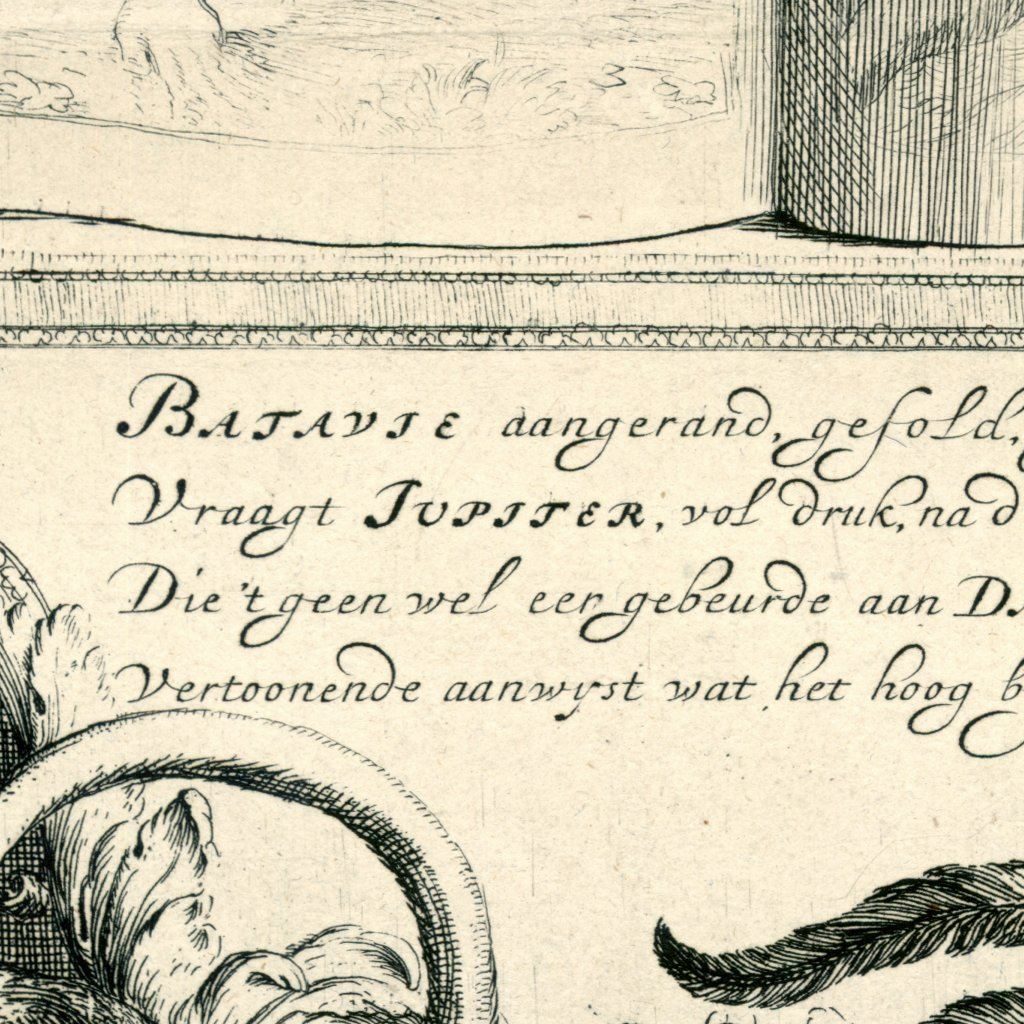 BATAVIE aangerand, gesold,
Vraagt JUPITER, vol druk, na d
Die 't geen wel eer gebeurde aan
Vertoonende aanwyst wat het hoog